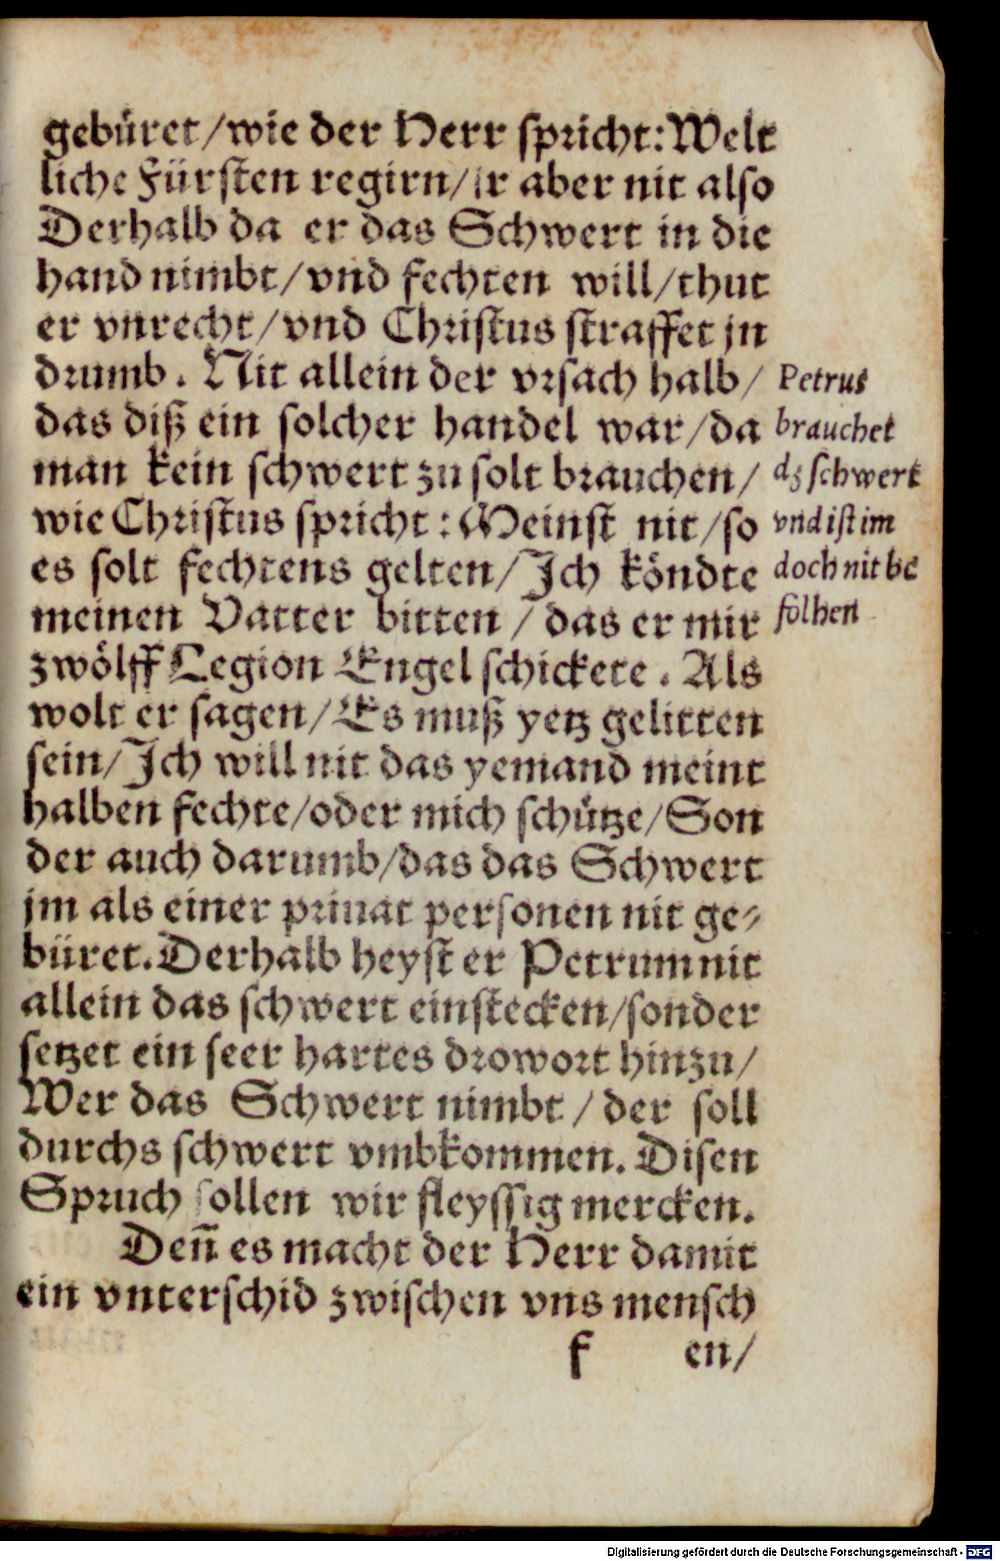 gebüret/wie der Herr spricht: Welt
liche Fürsten regirn/ir aber nit also
Derhalb da er das Schwert in die
hand nimbt/vnd fechten will/thut
er vnrecht/vnd Christus straffet jn
drumb. Nit allein der vrsach halb/
das diß ein solcher handel war/da
man kein schwert zu solt brauchen/
wie Christus spricht: Meinst nit/so
es solt fechtens gelten/Ich köndte
meinen Vatter bitten/das er mir
zwölff Legion Engel schickete. Als
wolt er sagen/Es muß yetz gelitten
sein/Ich will nit das yemand meint
halben fechte/oder mich schütze/Son
der auch darumb/das das Schwert
jm als einer priuat personen nit ge-
büret. Derhalb heyst er Petrum nit
allein das schwert einstecken/sonder
setzet ein seer hartes drowort hinzu/
Wer das Schwert nimbt/der soll
durchs schwert vmbkommen. Disen
Spruch sollen wir fleyssig mercken.
Deñ es macht der Herr damit
ein vnterschid zwischen vns mensch
f en/
Petrus
brauchet
dz schwert
vnd ist im
doch nit be
folhen
Digitalisierung gefördert durch die Deutsche Forschungsgemeinschaft - DFG